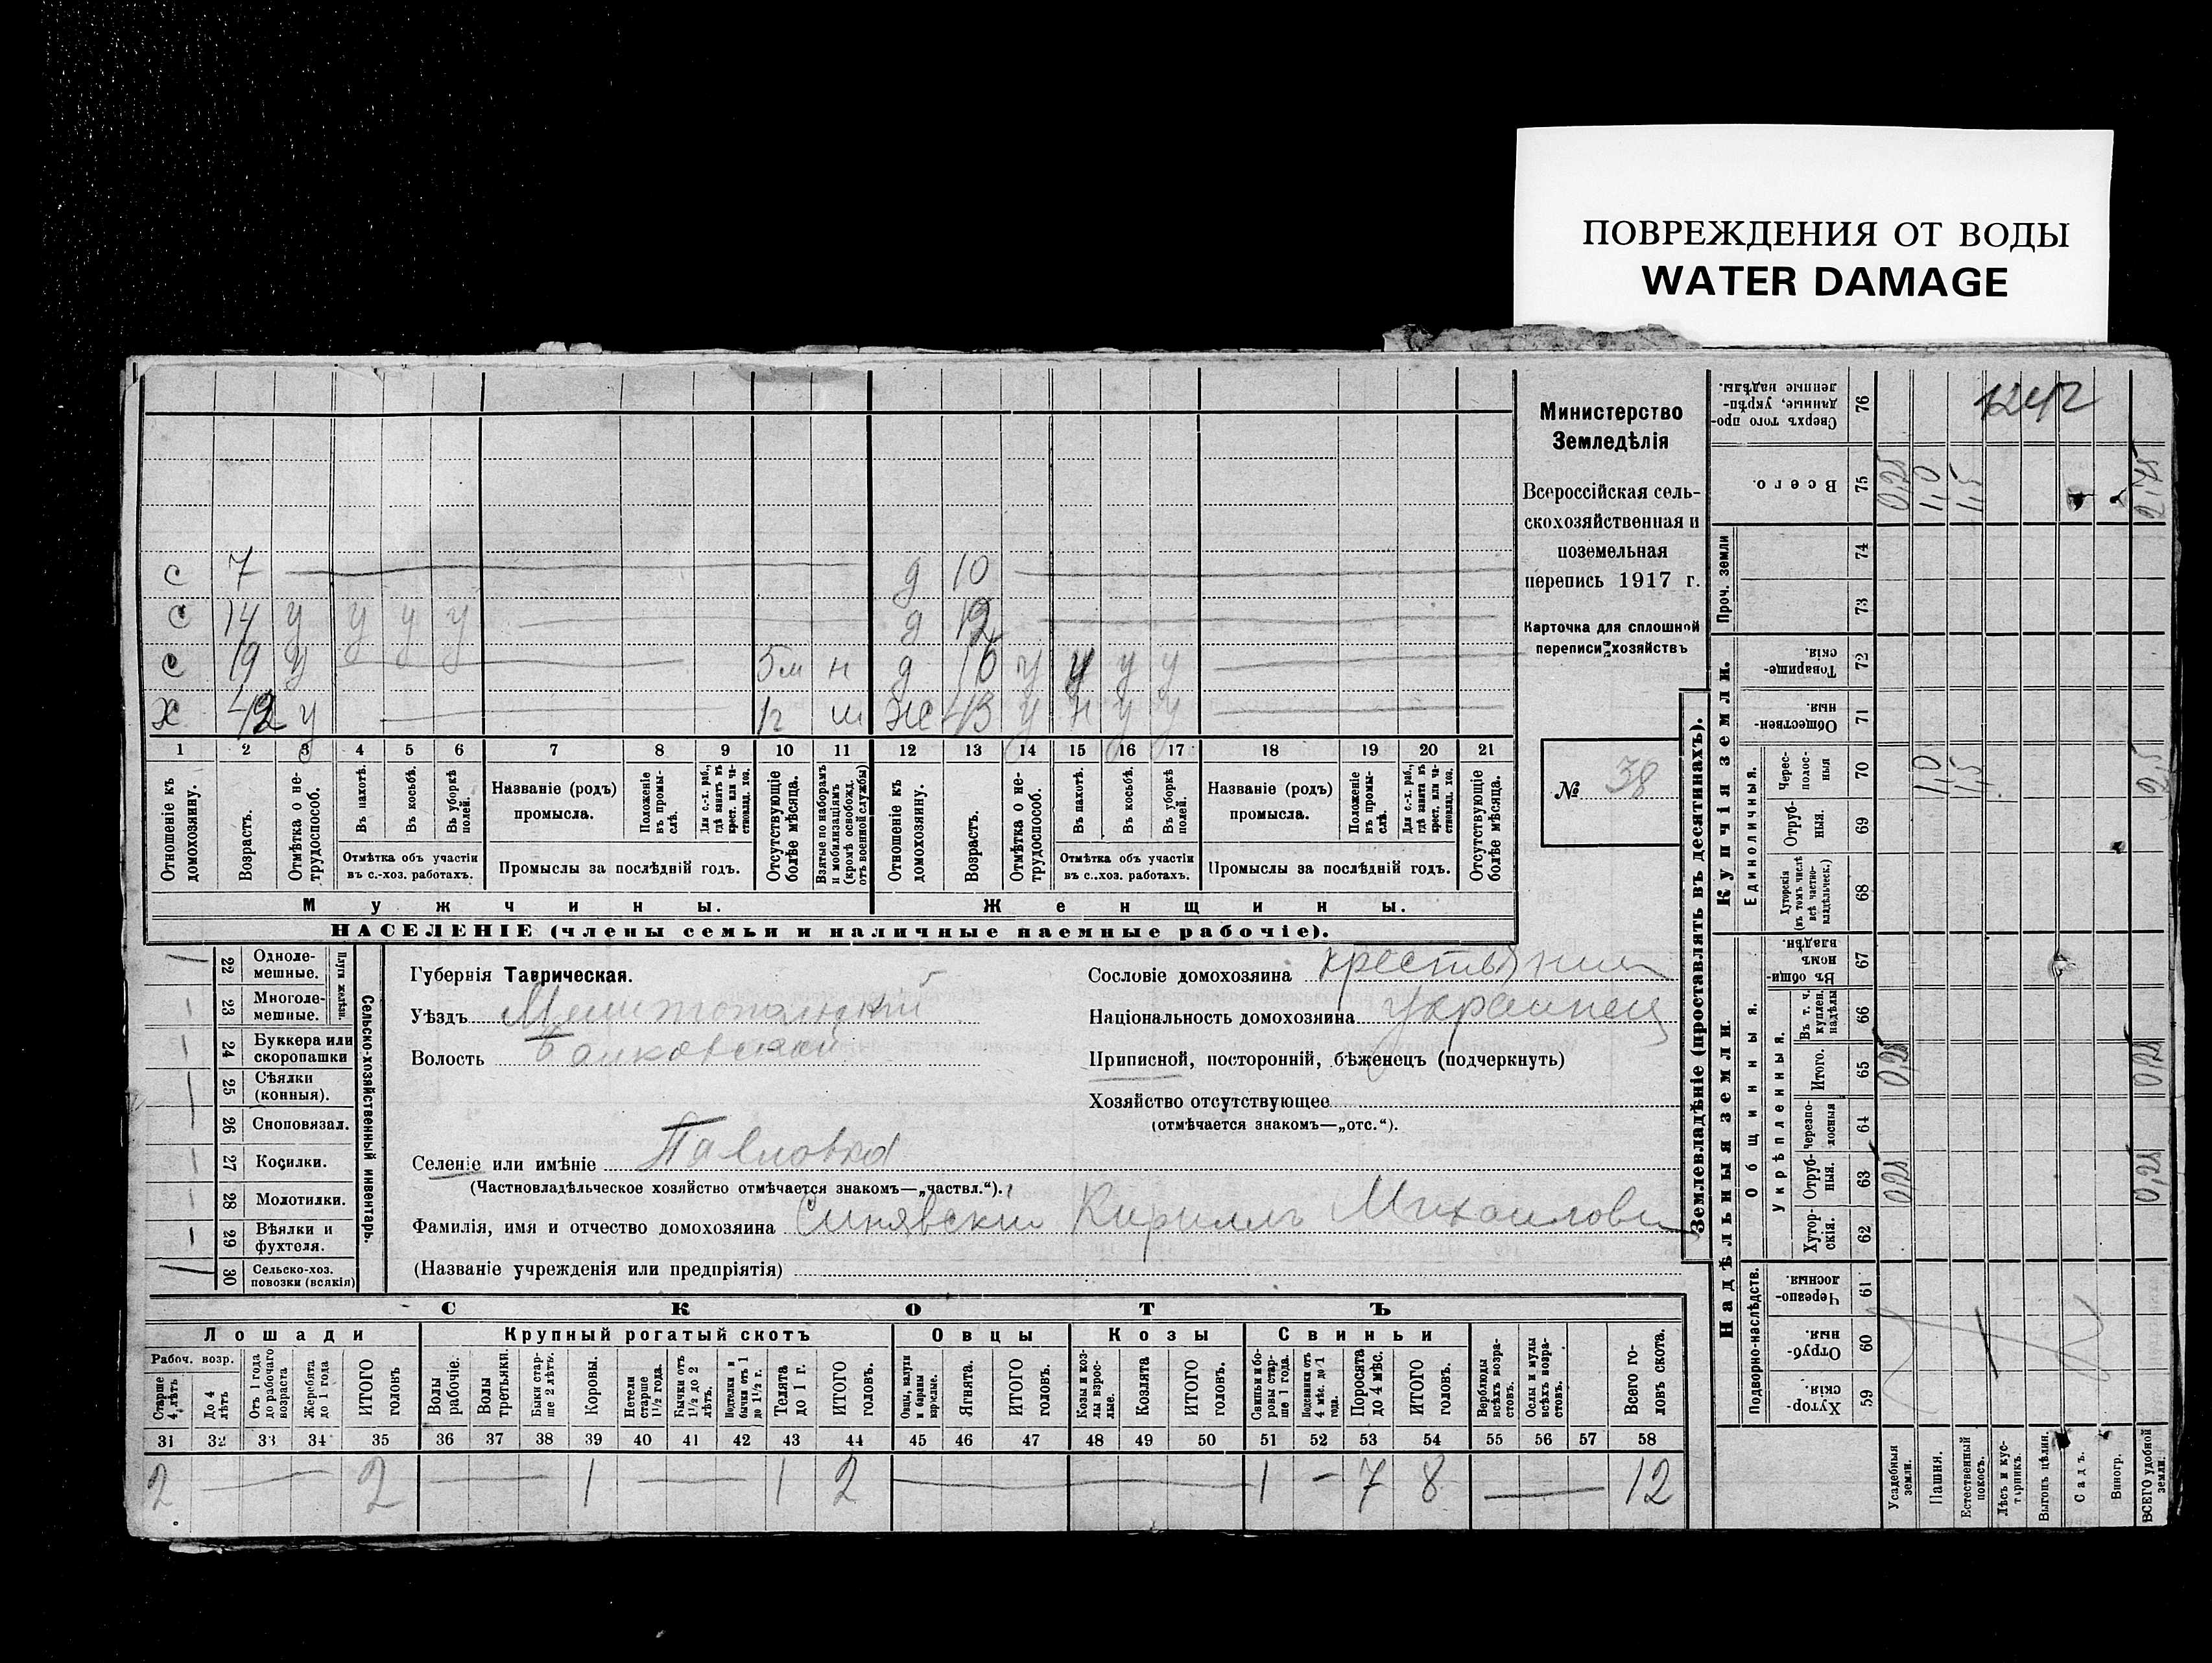 ПОВРЕЖДЕНИЯ ОТ ВОДЫ
WATER DAMAGE
Министерство
Земледѣлія
Всероссійская сель-
скохозяйственная и
поземельная
перепись 1917 г.
Карточка для сплошной
переписи хозяйствъ
№ 38
с 7 д 10
с 14 у у у у д 12
с 19 у 5м н д 16 у у у у
Х 42 у 1г ш Ж 43 у н у у
1 2 3 4 5 6 7 8 9 10 11 12 13 14 15 16 17 18 19 20 21
Отношеніе къ домохозяину.
Возрастъ.
Отмѣтка о не-трудоспособ.
Въ пахотѣ.
Въ косьбѣ.
Въ уборкѣ полей.
Отмѣтка объ участіи въ с.-хоз. работахъ.
Названіе (родъ) промысла.
Положеніе въ промы-слѣ.
Для с.-х. раб., гдѣ занятъ въ крест. или ча-стновлад. хоз.
Промыслы за послѣдній годъ.
Отсутствующіе болѣе мѣсяца.
Взятые по наборамъ и мобилизаціямъ (кромѣ освобожд. отъ военной службы)
Отношеніе къ домохозяину.
Возрастъ.
Отмѣтка о не-трудоспособ.
Въ пахотѣ.
Въ косьбѣ.
Въ уборкѣ полей.
Отмѣтка объ участіи въ с.-хоз. работахъ.
Названіе (родъ) промысла.
Положеніе въ промы-слѣ.
Для с.-х. раб., гдѣ занята въ крест. или ча-стновлад. хоз.
Промыслы за послѣдній годъ.
Отсутствующіе болѣе мѣсяца.
Мужчины. Женщины.
НАСЕЛЕНІЕ (члены семьи и наличные наемные рабочіе).
22 Одноле-мешные.
23 Многоле-мешные.
Плуги желѣзн.
24 Буккера или скоропашки
25 Сѣялки (конныя).
26 Сноповязал.
27 Косилки.
28 Молотилки.
29 Вѣялки и фухтеля.
30 Сельско-хоз. повозки (всякія)
Сельско-хозяйственный инвентарь.
Губернія Таврическая.
Уѣздъ Мелитопольский
Волость
Селеніе или имѣніе Павловка
(Частновладѣльческое хозяйство отмѣчается знакомъ—„частвл.“).
Фамилія, имя и отчество домохозяина Синявский Кириллъ Михайлович
(Названіе учрежденія или предпріятія)
Сословіе домохозяина крестьянин
Національность домохозяина украинец
Приписной, посторонній, бѣженецъ (подчеркнуть)
Хозяйство отсутствующее
(отмѣчается знакомъ—„отс.“).
СКОТЪ
Лошади Крупный рогатый скотъ Овцы Козы Свиньи
Рабоч. возр.
Старше 4 лѣтъ
До 4 лѣтъ
Отъ 1 года до рабочаго возраста
Жеребята до 1 года
ИТОГО головъ
Волы рабочіе.
Волы третьяки.
Быки стар-ше 2 лѣтъ.
Коровы.
Нетели старше 1½ года.
Бычки отъ 1½ до 2 лѣтъ.
Подтелки и бычки отъ 1 до 1½ г.
Телята до 1 г.
ИТОГО головъ.
Овцы, валухи и бараны взрослые.
Ягнята.
ИТОГО головъ.
Козы и коз-лы взрос-лые.
Козлята
ИТОГО головъ.
Свиньи и бо-ровы стар-ше 1 года.
Подсвинки отъ 4 мѣс. до 1 года.
Поросята до 4 мѣс.
ИТОГО головъ.
Верблюды всѣхъ возра-стовъ.
Ослы и мулы всѣхъ возра-стовъ.
Всего го-ловъ скота.
31 32 33 34 35 36 37 38 39 40 41 42 43 44 45 46 47 48 49 50 51 52 53 54 55 56 57 58
2 — 2 — 1 — 1 2 — 1 – 7 8 — 12
Землевладѣніе (проставлять въ десятинахъ).
Надѣльныя земли. Купчія земли. Проч. земли
Подворно-наслѣдств. Общинныя. Укрѣпленныя. Единоличныя.
76 Сверхъ того про-данные, укрѣп-ленные надѣлы.
75 Всего. 0,25 1,0 1,5 2,75
74
73
72 Товарище-скія.
71 Обществен-ныя.
70 Черес-полос-ныя 1,0 1,5 2,5
69 Отруб-ныя.
68 Хуторскія (въ томъ числѣ всѣ частно-владѣльческ.)
67 Въ общи-номъ владѣн.
66 Въ т. ч. куплен. надѣлы
65 Итого. 0,25 0,25
64 Черезпо-лосныя
63 Отруб-ныя. 0,25 0,25
62 Хутор-скія.
61 Черезпо-лосныя
60 Отруб-ныя.
59 Хутор-скія.
Усадебныя земли.
Пашня.
Естественный покосъ.
Лѣсъ и кус-тарникъ.
Выгонъ цѣлин.
Садъ.
Виногр.
ВСЕГО удобной земли.